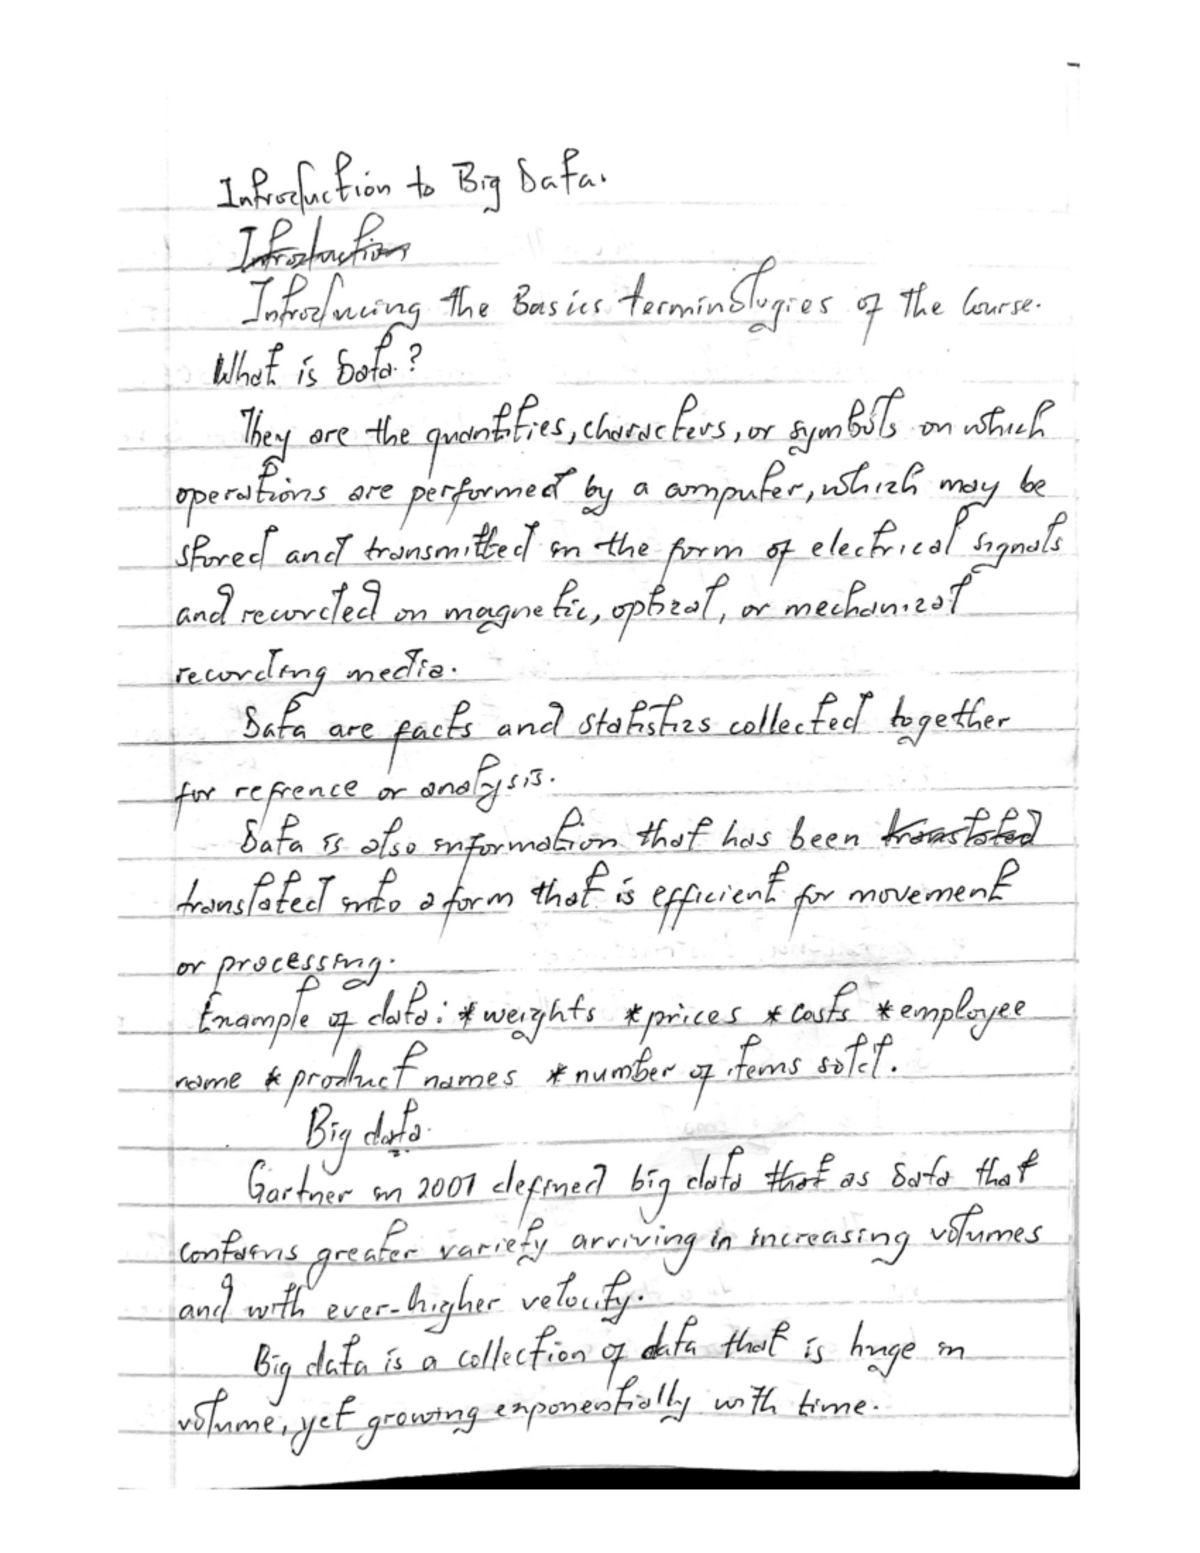 Introduction to Big Data.
Introduction
Introducing the Basics terminologies of the Course.
What is Data?
They are the quantities, characters, or symbols on which
operations are performed by a computer, which may be
stored and transmitted in the form of electrical signals
and recorded on magnetic, optical, or mechanical
recording media.
Data are facts and statistics collected together
for refrence or analysis.
Data is also information that has been translated
translated into a form that is efficient for movement
or processing.
Example of data: *weights *prices *costs *employee
name *product names *number of items sold.
Big data.
Gartner in 2001 defined big data that as Data that
contains greater variety arriving in increasing volumes
and with ever-higher velocity.
Big data is a collection of data that is huge in
volume, yet growing exponentially with time.